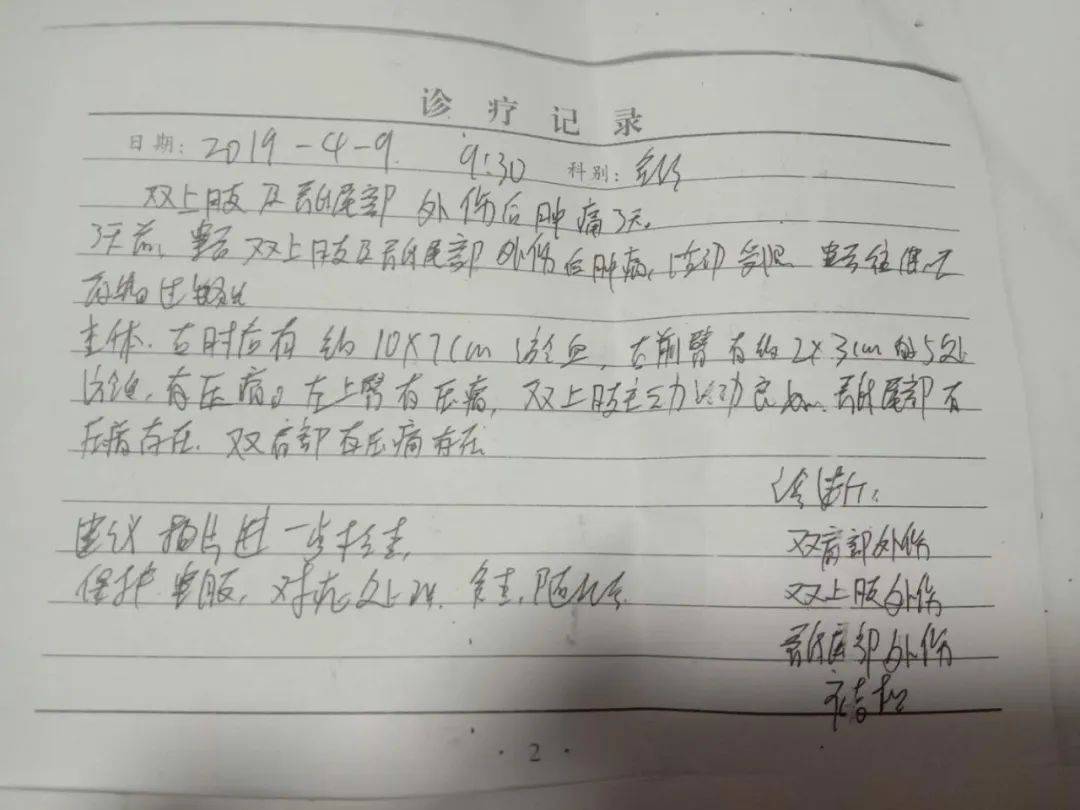 诊疗记录
日期: 2019-4-9 9:30 科别:
双上肢及骶尾部外伤后肿痛3天。
3天前, 患者双上肢及骶尾部外伤后肿痛, 活动受限
查体. 右肘后有约10×7cm瘀血, 右前臂有约2×3cm的5处
瘀血, 有压痛。左上臂有压痛, 双上肢主动活动良好. 骶尾部有
压痛存在. 双肩部有压痛存在
诊断:
建议拍片进一步检查,
双肩部外伤
保护患肢, 对症处理. 复查, 随诊
双上肢外伤
骶尾部外伤
·2·